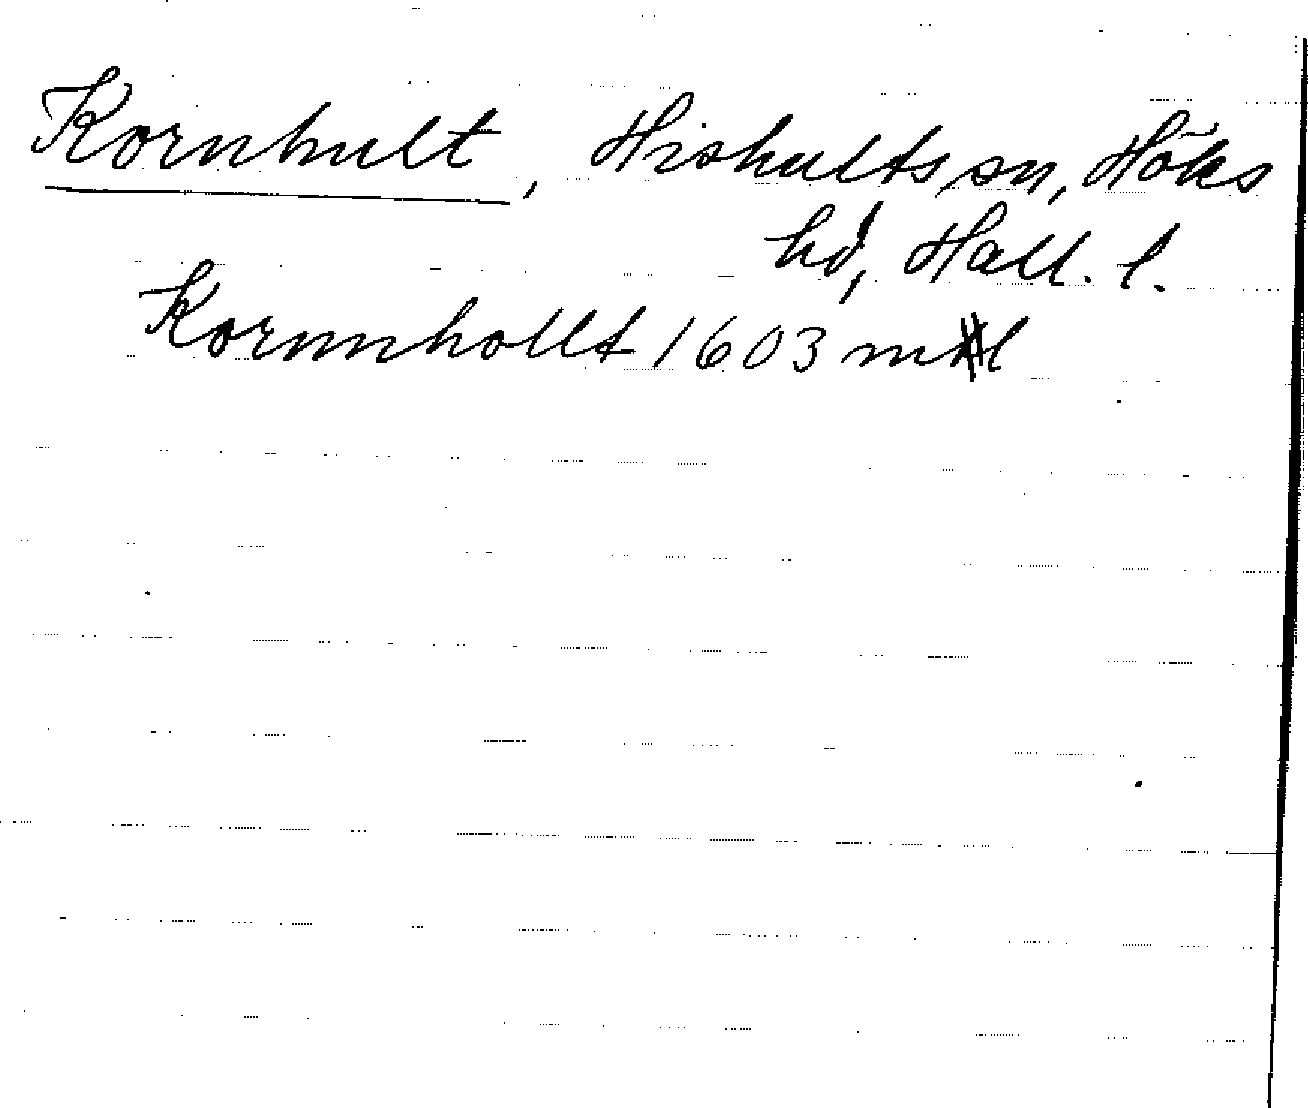 Kornhult, Hishults sn, Höks
hd, Hall. l.
Kornnhollt 1603 ml